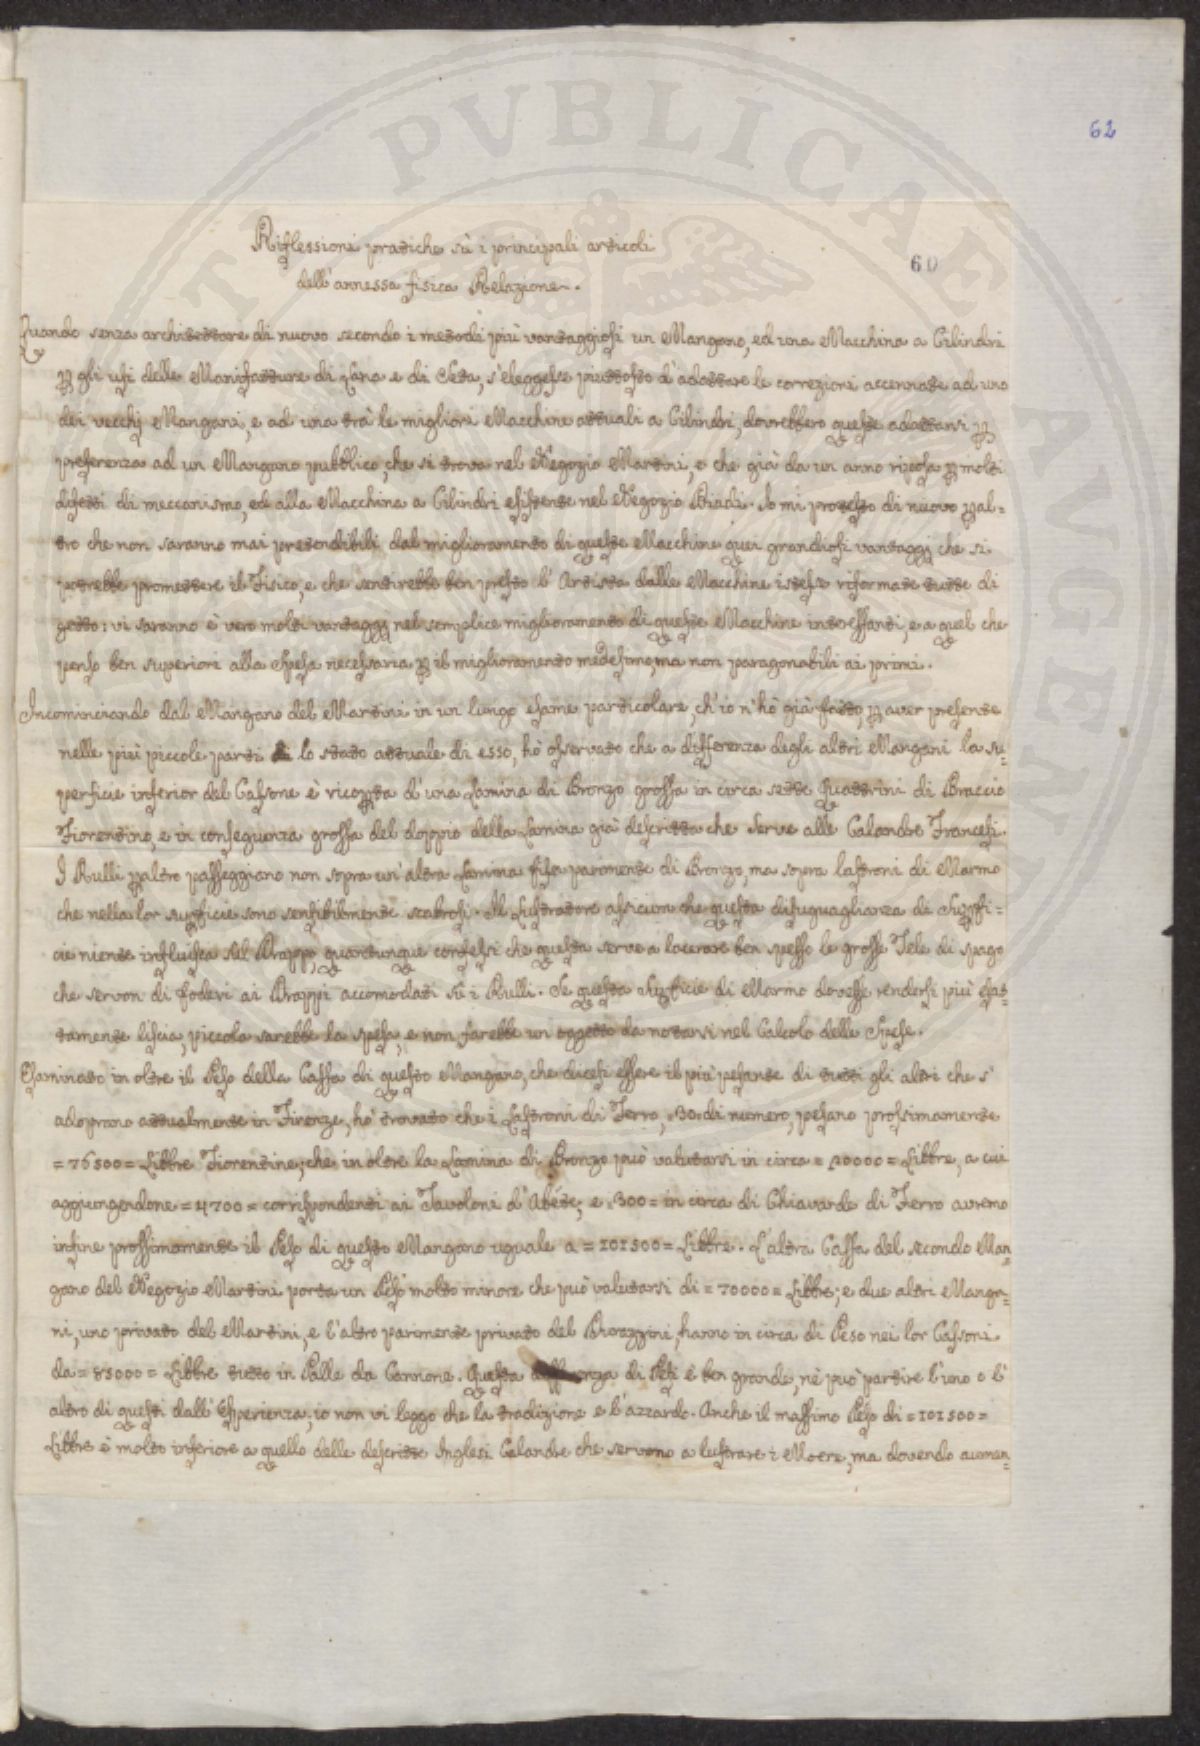 62
60
Riflessioni pratiche sù i principali articoli
dell'annessa fisica Relazione.
Quando senza architettare di nuovo secondo i metodi più vantaggiosi un Mangano, ed una Macchina a Cilindri
p gli usi delle Manifatture di Lana e di Seta, s'eleggesse piuttosto d'adattare le correzioni accennate ad uno
dei vecchj Mangani, e ad una trà le migliori Macchine attuali a Cilindri, dovrebbero queste adattarsi p
preferenza ad un Mangano pubblico, che si trova nel Negozio Martini, e che già da un anno riposa p molti
difetti di meccanismo, ed alla Macchina a Cilindri esistente nel Negozio Briadi. Io mi protesto di nuovo pal=
tro che non saranno mai presendibili dal miglioramento di queste Macchine quei grandiosi vantaggj che si
potrebbe promettere il Fisico, e che sentirebbe ben presto l'Artista dalle Macchine istesse riformate tutte di
getto: vi saranno è vero molti vantaggj nel semplice miglioramento di queste Macchine interessanti, e a quel che
penso ben superiori alla Spesa necessaria p il miglioramento medesimo, ma non paragonabili ai primi.
Incominciando dal Mangano del Martini in un lungo esame particolare, ch'io n'hò già fatto, p aver presente
nelle più piccole parti lo stato attuale di esso, hò osservato che a differenza degli altri Mangani la su=
perficie inferior del Cassone è ricopta d'una Lamina di Bronzo grossa in circa sette Quattrini di Braccio
Fiorentino, e in conseguenza grossa del doppio della Lamina già descritta che serve alle Calandre Francesi.
I Rulli paltro passeggiano non sopra un'altra Lamina fissa parimente di Bronzo, ma sopra lastroni di Marmo
che nella lor supficie sono sensibilmente scabrosi. Il Lustratore assicura che questa disuguaglianza di Supfi=
cie niente influisca sul Drappo, quantunque confessi che questa serve a lacerare ben spesso le grosse Tele di spago
che servon di foderi ai Drappi accomodati sù i Rulli. Se questa Supficie di Marmo dovesse rendersi più esat=
tamente liscia, piccola sarebbe la spesa, e non farebbe un oggetto da notarsi nel Calcolo delle Spese.
Esaminato in oltre il Peso della Cassa di questo Mangano, che dicesi essere il più pesante di tutti gli altri che s'
adoprano attualmente in Firenze, hò trovato che i Lastroni di Ferro, =30= di numero, pesano prossimamente
=76500= Libbre Fiorentine; che in oltre la Lamina di Bronzo può valutarsi in circa =20000= Libbre, a cui
aggiungendone =4700= corrispondenti ai Tavoloni d'Abéte, e =300= in circa di Chiavarde di Ferro avremo
infine prossimamente il Peso di questo Mangano uguale a =101500= Libbre. L'altra Cassa del secondo Man=
gano del Negozio Martini porta un Peso molto minore che può valutarsi di =70000= Libbre; e due altri Manga=
ni, uno privato del Martini, e l'altro parimente privato del Bicrazzini, hanno in circa di Peso nei lor Cassoni
da =85000= Libbre tutto in Palle da Cannone. Questa differenza di Pesi è ben grande, nè può partire l'uno o l'
altro di questi dall'Esperienza; io non vi leggo che la tradizione e l'azzardo. Anche il massimo Peso di =101500=
Libbre è molto inferiore a quello delle descritte Inglesi Calandre che servono a lustrare i Moere, ma dovendo aumen=